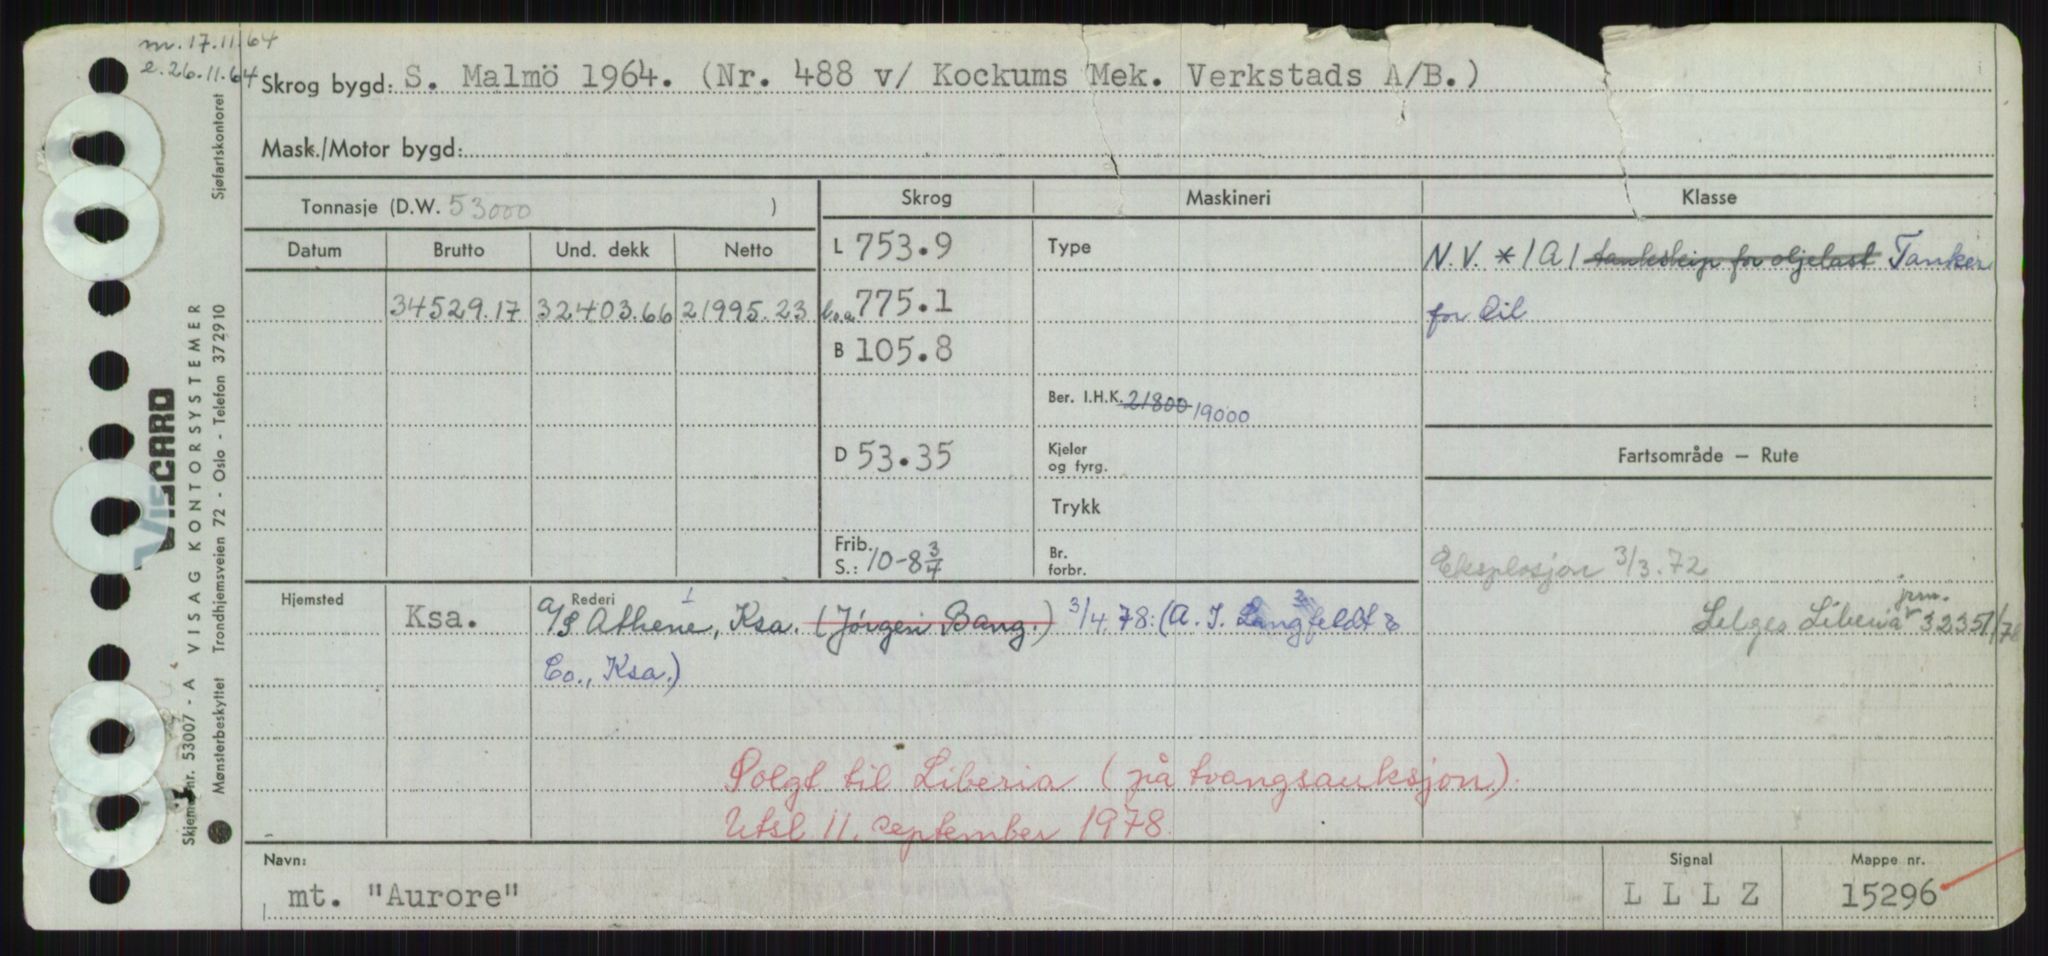 m. 17.11.64
e. 26.11.64
Skrog bygd: S. Malmö 1964. (Nr. 488 v/ Kockums Mek. Verkstads A/B.)
Mask./Motor bygd:
Tonnasje (D.W. 53000 )
Skrog
Maskineri
Klasse
Datum
Brutto
Und. dekk
Netto
34529.17
32403.66
21995.23
L 753.9
l.o.a 775.1
B 105.8
D 53.35
Frib.
S.: 10-8 3/4
Type
Ber. I.H.K. 21800 19000
Kjeler
og fyrg.
Trykk
Br.
forbr.
N.V. * 1A1 tankskip for oljelast Tanker
for Oil
Fartsområde – Rute
Eksplosjon 3/3.72
jrm.
Selges Liberia 32357/78
Hjemsted
Ksa.
Rederi
A/S Athene, Ksa. (Jörgen Bang.) 3/4.78: (A. I. Langfeldt &
Co., Ksa.)
Solgt til Liberia (på tvangsauksjon).
Utsl 11. september 1978.
Navn:
mt. "Aurore"
Signal
L L L Z
Mappe nr.
15296
VISCARD
VISAG KONTORSYSTEMER
Skjema nr. 53007 - A
Mønsterbeskyttet Trondhjemsveien 72 - Oslo - Telefon 37 29 10 Sjøfartskontoret